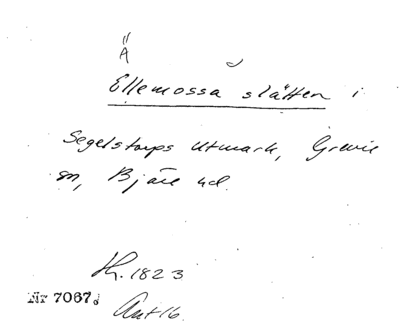 Ä
Ellemossa slätten i
Segelstorps Utmark, Grevie
sn, Bjäre hd.
1823
Nr 7067
Akt 16.